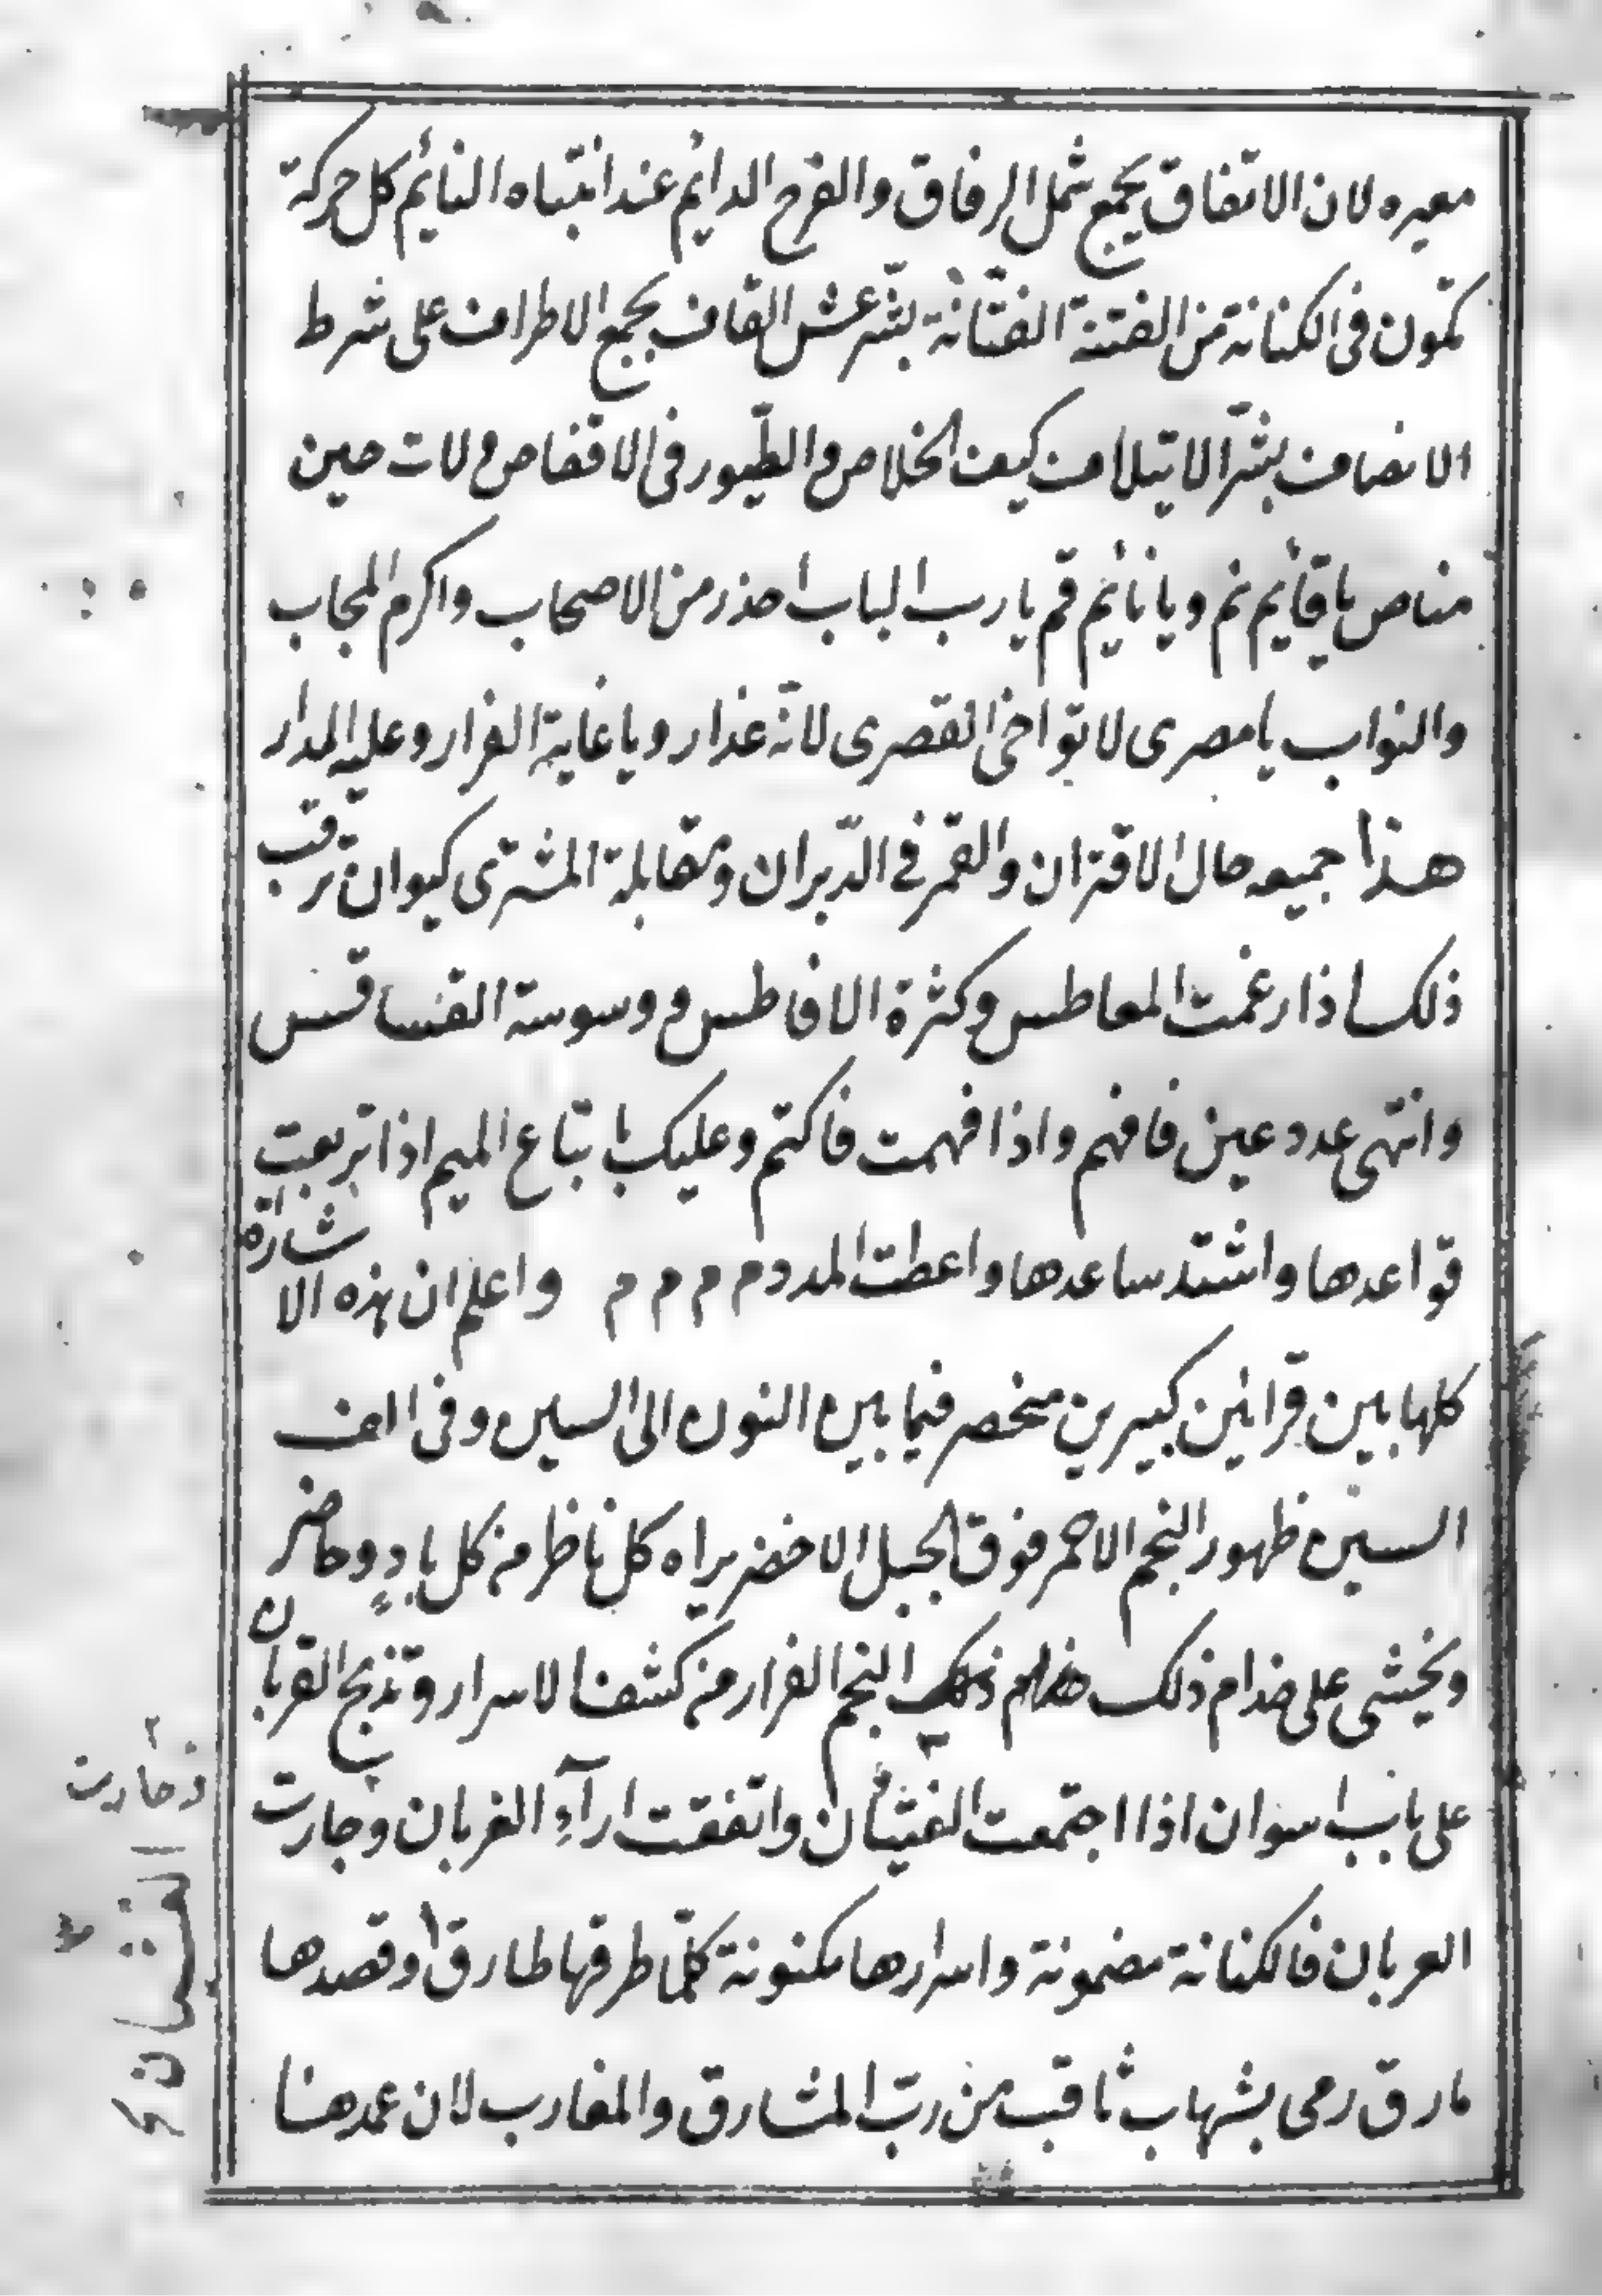 معيره لان الاتفاق يجمع شمل الرفاق والفرح الدائم عند انتباه النائم كل حركة
تكون في الكنانة من الفتنة الفتانة بشر عش القاف بجمع الاطراف على شرط
الانصاف بشر الايتلاف كيف الخلاص والطيور في الاقفاص ولات حين
مناص يا قائم نم ويا نائم قم يا رب الباب احذر من الاصحاب واكرم الحجاب
والنواب يا مصرى لا تواخى القصرى لانه غدار ويا غاية الفرار وعليه المدار
هذا جميعه حال الاقتران والقمر في الدبران ومقابلة المشترى كيوان ترقب
ذلك اذا رغمت المعاطس وكثرة الافاطس ووسوسة القسا قسس
وانتهى عدد عين فافهم واذا فهمت فاكتم وعليك باتباع الميم اذا تربعت
قواعدها واشتد ساعدها واعطت المدد م م م م واعلم ان هذه الاشارة
كلها بين قرانين كبيرين منحصر فيما بين النون الى السين وفى الف
السين ظهور النجم الاحمر فوق الجبل الاخضر يراه كل ناظر من كل بادٍ وحاضر
ويخشى على خدام ذلك النجم الفرار من كشف الاسرار وتذبح القربان
على باب اسوان اذا اجتمعت الفئتان واتفقت ارآء الغربان وجارت
العربان فالكنانة مضمونة واسرارها مكنونة كلما طرقها طارق او قصدها
مارق رمى بشهاب ثاقب من رب المشارق والمغارب لان عمدهنا